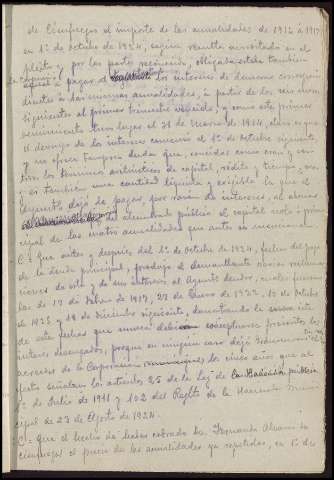 de Cienfuegos el importe de las anualidades de 1912 á 1917
en 1º de octubre de 1924, según resulta acreditado en el
pleito y por las partes reconocido, obligada estaba tambien
pagar el los intereses de demora correspon
dientes á las mismas anualidades, á partir de los seis meses
siguientes al primer trimestre vencido, y como este primer
vencimiento tuvo lugar el 31 de Enero de 1914, claro es que
el devengo de los intereses comenzó el 1º de octubre siguiente,
y no ofrece tampoco duda que, conocidos como eran y son
los terminos aritmeticos de capital, rédito y tiempo, co
nocen tambien una cantidad liquida y exigible la que el
dejó de pagar, por razon de intereses, al abonar
por del demandante publica el capital resto o princi
pal de las cuatro anualidades que antes se mencionan.
C: Que antes y despues del 1º de octubre de 1924, fecha del pago
de la deuda principal, produjo el demandante varias reclama
ciones de esta y de sus intereses al Ayunto deudor, cuales fueron
las de 17 de Febrero de 1917, 27 de Enero de 1922, 15 de octubre
de 1925 y 18 de Diciembre siguiente, denotando la
de estas fechas que nunca debieron conceptuarse prescritos los
intereses devengados, porque en ningun caso dejó
acreedor de la Corporacion municipal los cinco años que al
efecto señalan los articulos 25 de la Ley de la Hacienda publica
1º de Julio de 1911 y 102 del Reglto de la Hacienda Munici
pal de 23 de Agosto de 1924.
C: Que el hecho de haber cobrado Dn Fernando Alvarez de
Cienfuegos el precio de las anualidades ya repetidas, en 1º de